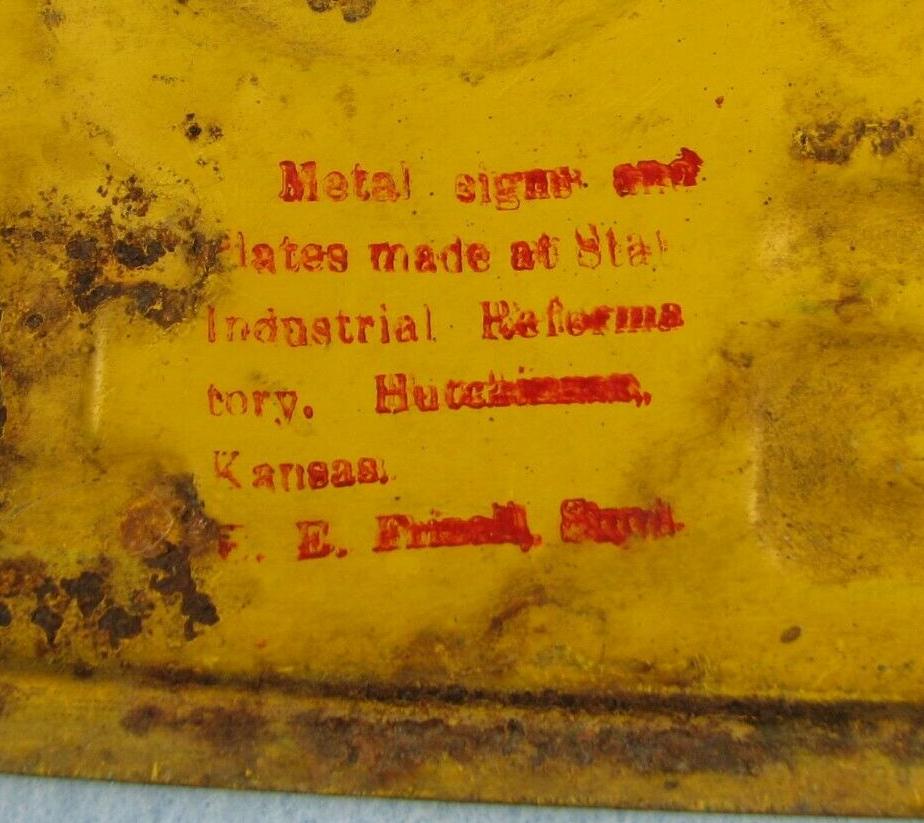 Metal signs and
Plates made at Stat
Industrial Reforma
tory. Hutchinson,
Kansas.
E. E. Frizell, Supt.